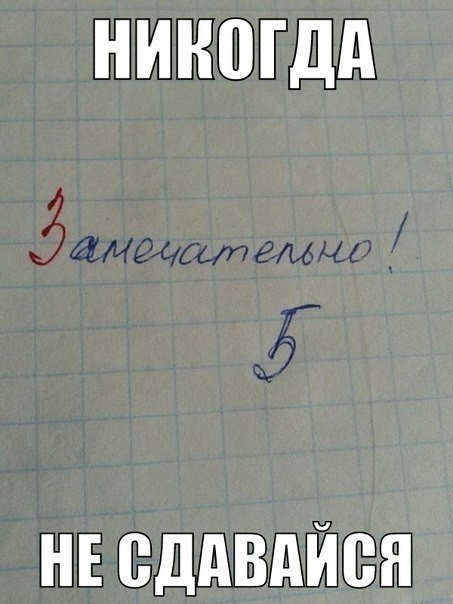 НИКОГДА
Замечательно!
5
НЕ СДАВАЙСЯ